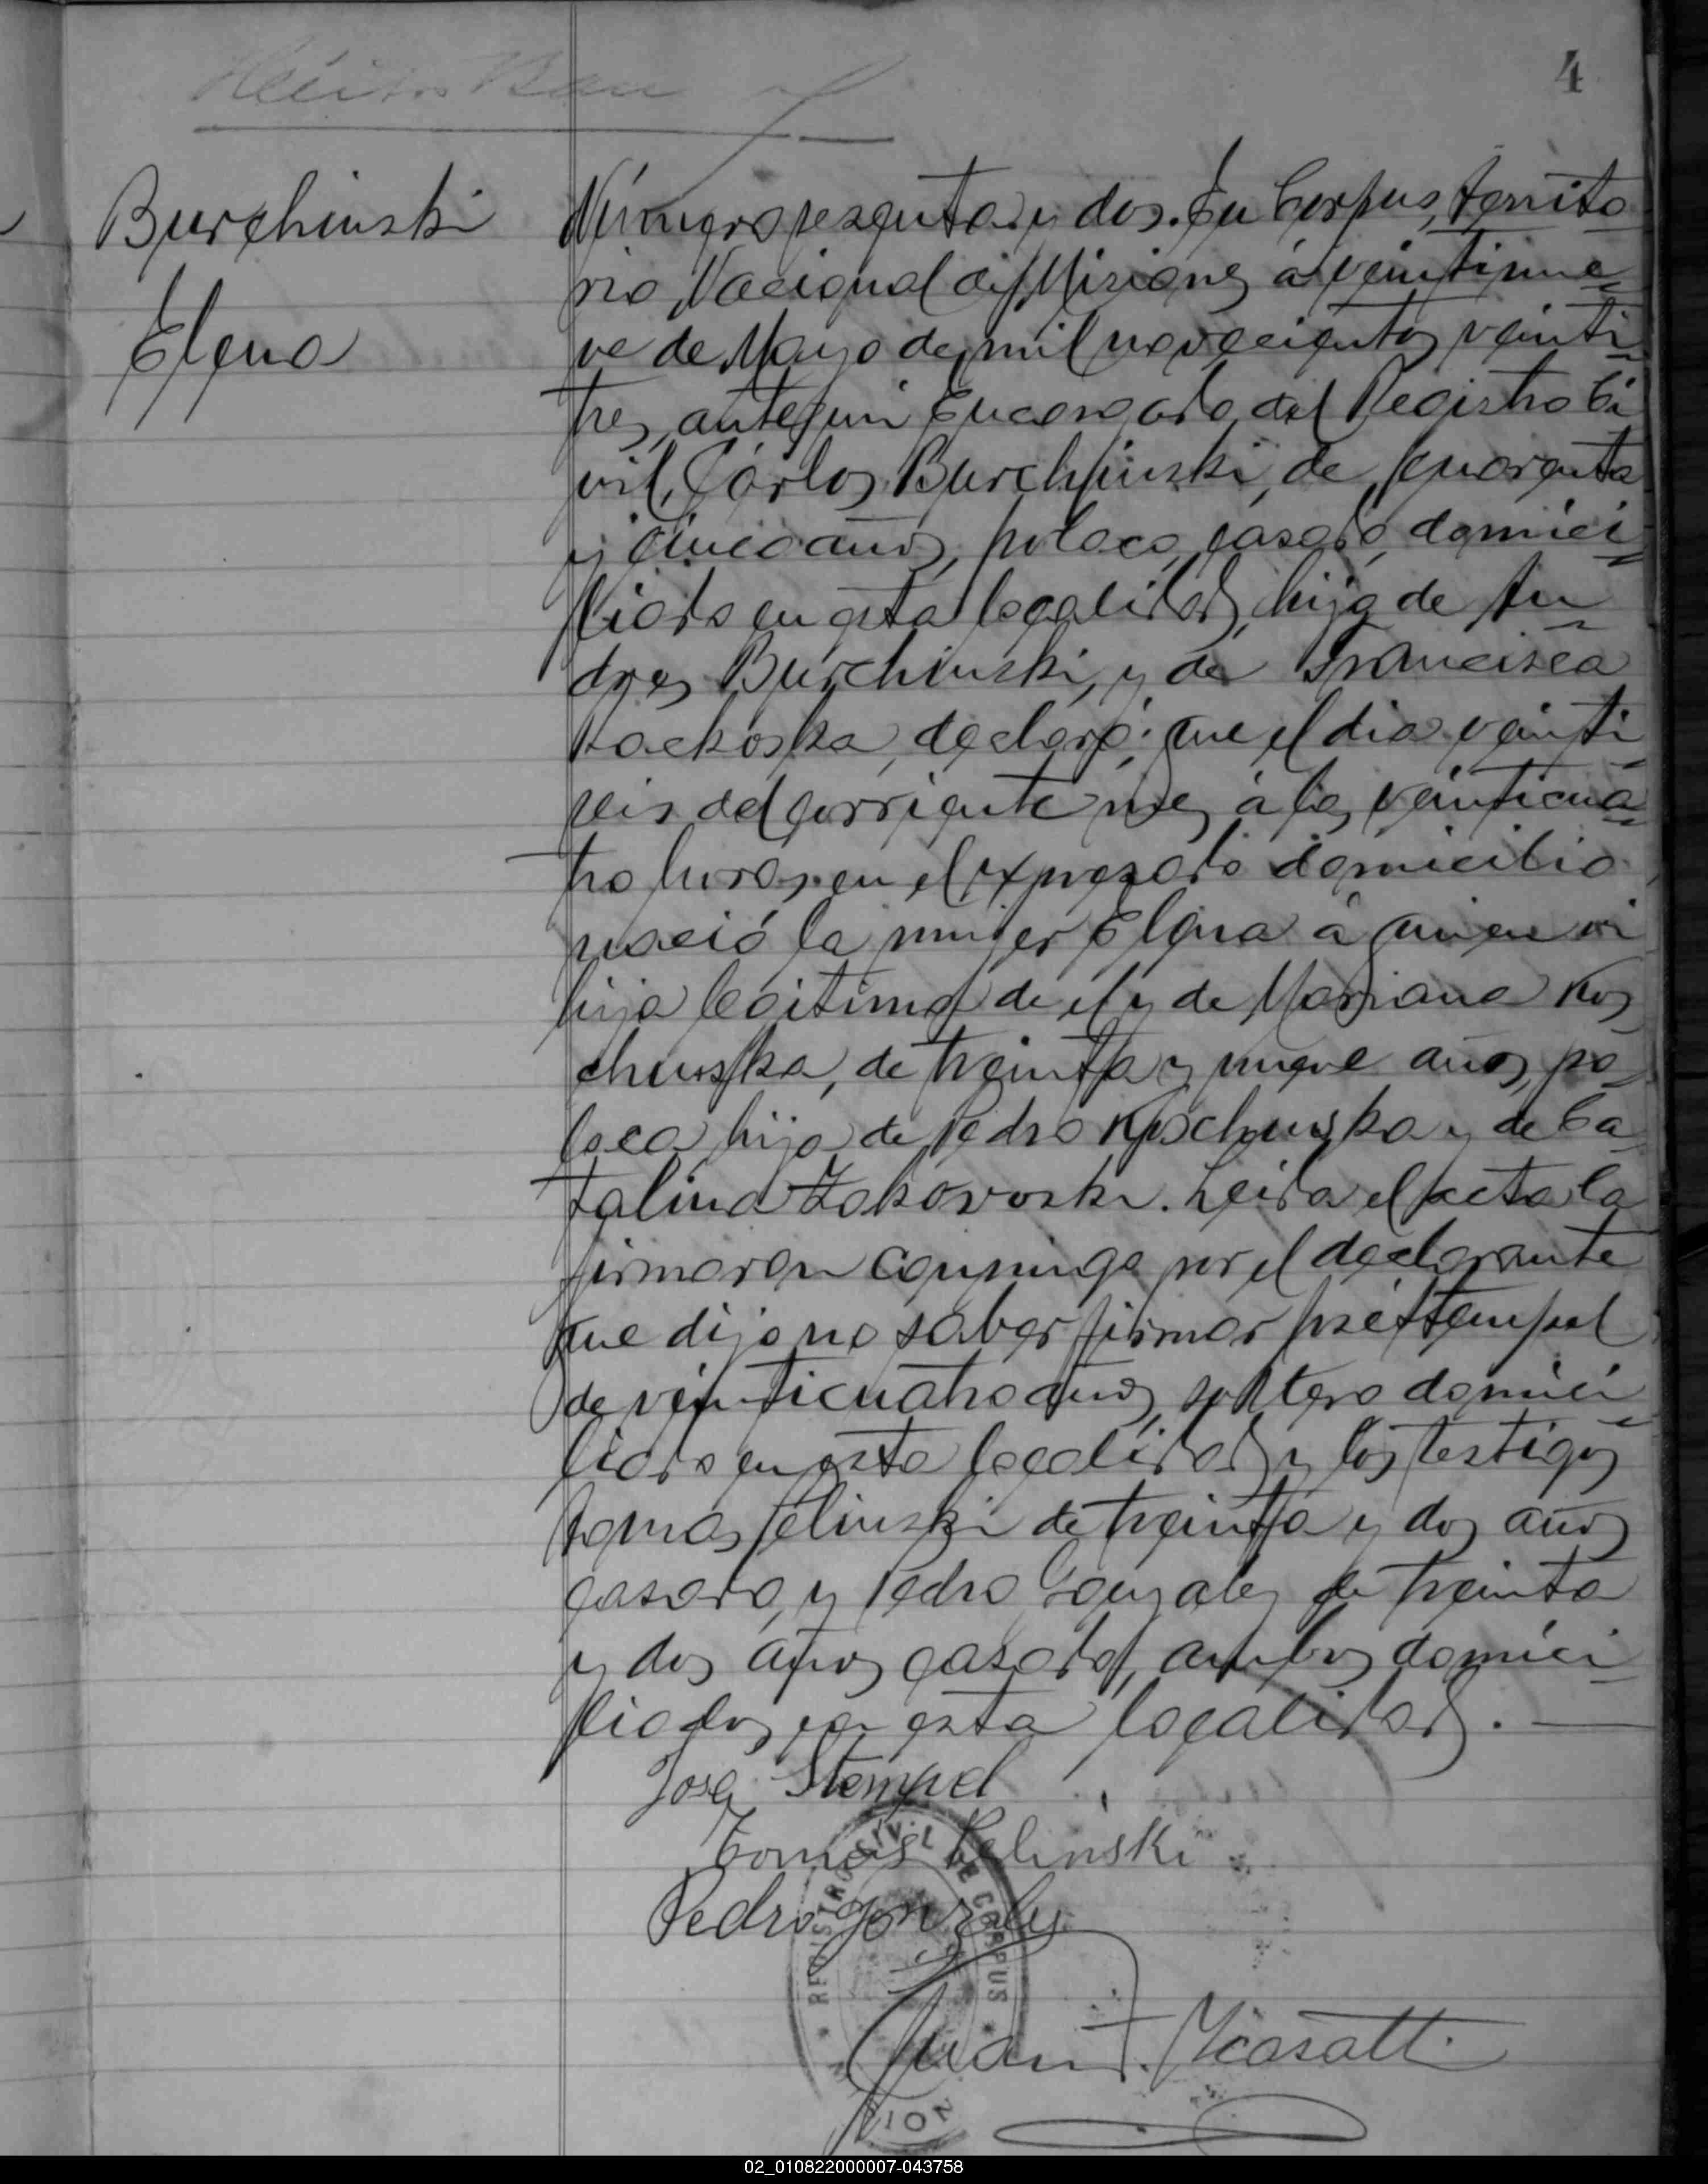 4
Burchinski
Elena
Número sesenta y dos. En Corpus, territo
rio Nacional de Misiones á veintinue
ve de Mayo de mil novecientos veinti
tres, ante mi Encargado del Registro Ci
vil, Cárlos Burchinski, de cuarenta
y cinco años, polaco, casado, domici
liado en esta localidad, hijo de An
dres Burchinski, y de Francisca
declaró: que el dia veinti
seis del corriente mes á las veinticua
tro horas, en el expresado domicilio
nació la mujer Elena á quien vi
hija legitima de el y de Mariana Kos
chuska, de treinta y nueve años, po
laca, hija de Pedro Koschuska y de Ca
talina Leida el acta la
firmaron conmigo por el declarante
que dijo no saber firmar José Stempel
de veinticuatro años, soltero domici
liado en esta localidad y los testigos
tomas Celinski de treinta y dos años
casado, y Pedro Gonzales de treinta
y dos años casado, ambos domici
liados en esta localidad.
José Stempel
Tomás Celinski
Pedro Gonzales
REGISTRO CIVIL DE CORPUS
Juan
02_010822000007-043758